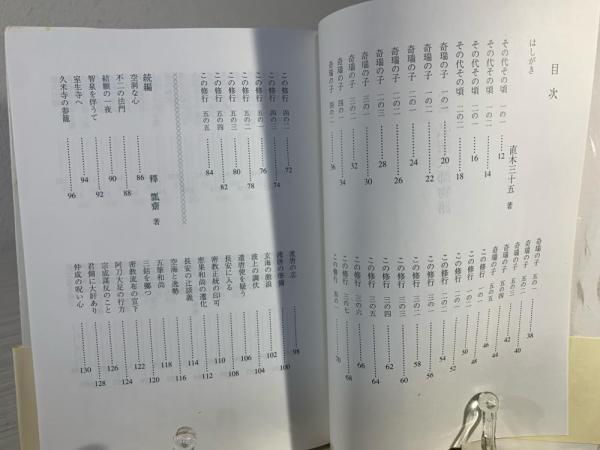 目次
はしがき
直木三十五 著
その代その頃 一の一 12
その代その頃 一の二 14
その代その頃 二の一 16
その代その頃 二の二 18
奇瑞の子 一の一 20
奇瑞の子 一の二 22
奇瑞の子 二の一 24
奇瑞の子 二の二 26
奇瑞の子 三の一 28
奇瑞の子 三の二 30
奇瑞の子 三の三 32
奇瑞の子 四の一 34
奇瑞の子 四の二 36
奇瑞の子 五の一 38
奇瑞の子 五の二 40
奇瑞の子 五の三 42
奇瑞の子 五の四 44
奇瑞の子 五の五 46
この修行 一の一 48
この修行 50
この修行 52
この修行 54
この修行 56
この修行 58
この修行 60
この修行 三の四 62
この修行 三の五 64
この修行 三の六 66
この修行 三の七 68
この修行 70
この修行 四の二 72
この修行 四の三 74
この修行 五の一 76
この修行 五の二 78
この修行 五の三 80
この修行 五の四 82
この修行 五の五 84
続編
釋瓢齋 著
空洞な心 86
不二の法門 88
結願の一夜 90
智泉を伴うて 92
室生寺へ 94
久米寺の参籠 96
渡唐の志 98
渡唐の準備 100
玄海の激浪 102
波上の調伏 104
遣唐使を疑う 106
長安に入る 108
密教正統の印可 110
恵果和尚の遷化 112
長安の辻談義 114
空海と逸勢 116
五筆和尚 118
三鈷を擲つ 120
密教流布の宣下 122
阿刀大足の行方 124
宗成謀反のこと 126
君側に大奸あり 128
仲成の呪い心 130